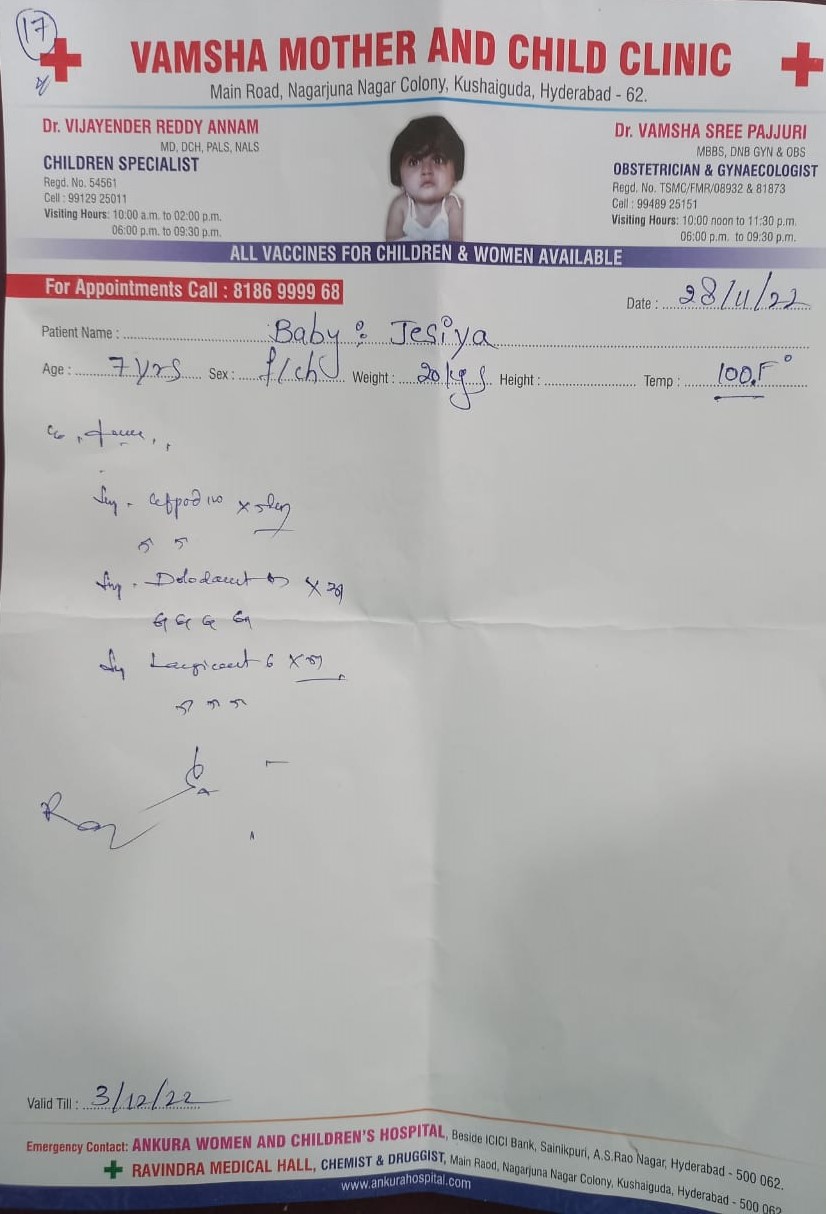 17
VAMSHA MOTHER AND CHILD CLINIC
Main Road, Nagarjuna Nagar Colony, Kushaiguda, Hyderabad - 62.
Dr. VIJAYENDER REDDY ANNAM
MD, DCH, PALS, NALS
CHILDREN SPECIALIST
Regd. No. 54561
Cell : 99129 25011
Visiting Hours: 10:00 a.m. to 02:00 p.m.
06:00 p.m. to 09:30 p.m.
Dr. VAMSHA SREE PAJJURI
MBBS, DNB GYN & OBS
OBSTETRICIAN & GYNAECOLOGIST
Regd. No. TSMC/FMR/08932 & 81873
Cell : 99489 25151
Visiting Hours: 10:00 noon to 11:30 p.m.
06:00 p.m. to 09:30 p.m.
ALL VACCINES FOR CHILDREN & WOMEN AVAILABLE
For Appointments Call : 8186 9999 68
Date : 28/11/22
Patient Name : Baby : Jesiya
Age : 7yrs Sex : f/ch Weight : 20kgs Height : Temp : 100.F°
Valid Till : 3/12/22
Emergency Contact: ANKURA WOMEN AND CHILDREN'S HOSPITAL, Beside ICICI Bank, Sainikpuri, A.S.Rao Nagar, Hyderabad - 500 062.
RAVINDRA MEDICAL HALL, CHEMIST & DRUGGIST, Main Raod, Nagarjuna Nagar Colony, Kushaiguda, Hyderabad - 500 062
www.ankurahospital.com